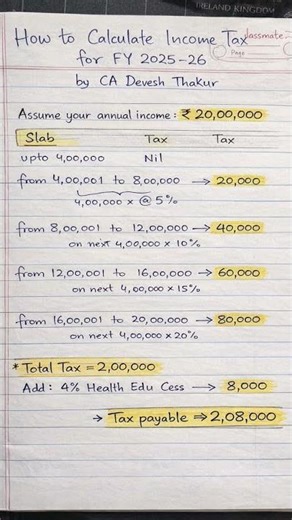 IRELAND KINGDOM
classmate
Page
How to Calculate Income Tax
for FY 2025-26
by CA Devesh Thakur
Assume your annual income : ₹ 20,00,000
Slab Tax Tax
upto 4,00,000 Nil
from 4,00,001 to 8,00,000 → 20,000
4,00,000 x @ 5%
from 8,00,001 to 12,00,000 → 40,000
on next 4,00,000 x 10%
from 12,00,001 to 16,00,000 → 60,000
on next 4,00,000 x 15%
from 16,00,001 to 20,00,000 → 80,000
on next 4,00,000 x 20%
* Total Tax = 2,00,000
Add : 4% Health Edu Cess → 8,000
→ Tax payable ⇒ 2,08,000